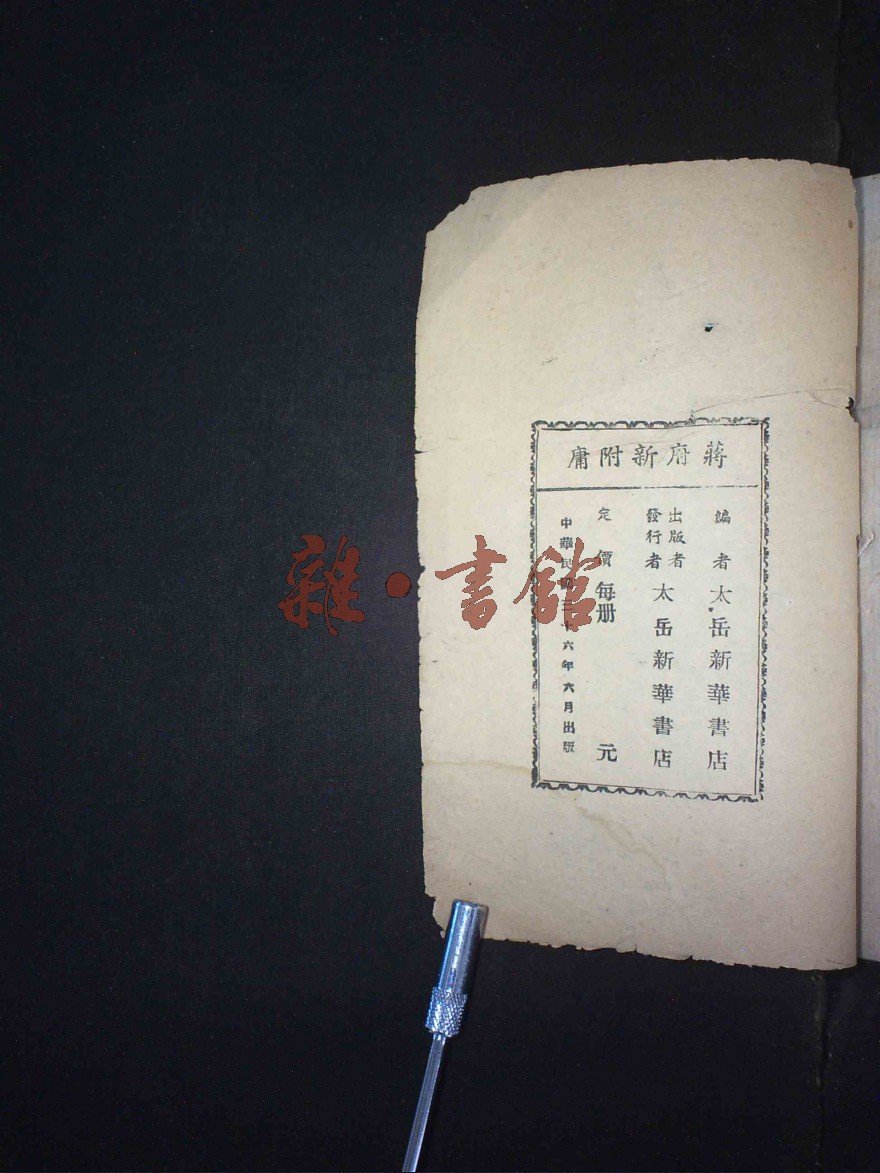 蔣府新附庸
編者 太岳新華書店
出版者
發行者 太岳新華書店
定價 每册 元
中華民國三十六年六月出版
雜·書館